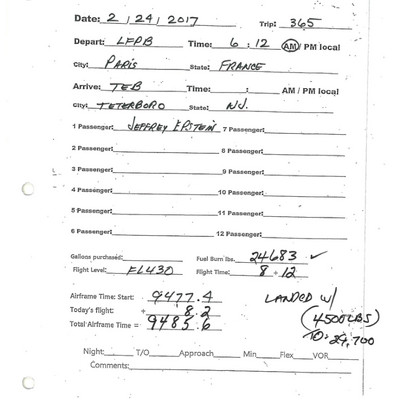 Date: 2 / 24 / 2017 Trip: 365
Depart: LFPB Time: 6 : 12 AM / PM local
City: PARIS State: FRANCE
Arrive: TEB Time: : AM / PM local
City: TETERBORO State: NJ.
1 Passenger: JEFFREY EPSTEIN 7 Passenger:
2 Passenger: 8 Passenger:
3 Passenger: 9 Passenger:
4 Passenger: 10 Passenger:
5 Passenger: 11 Passenger:
6 Passenger: 12 Passenger:
Gallons purchased: Fuel Burn lbs. 24683 ✓
Flight Level: FL430 Flight Time: 8 + 12
Airframe Time: Start: 9477.4 LANDED W/
Today's flight: + 8.2 (4500 LBS)
Total Airframe Time = 9485.6 TO: 29,700
Night: T/O Approach Min Flex VOR
Comments: